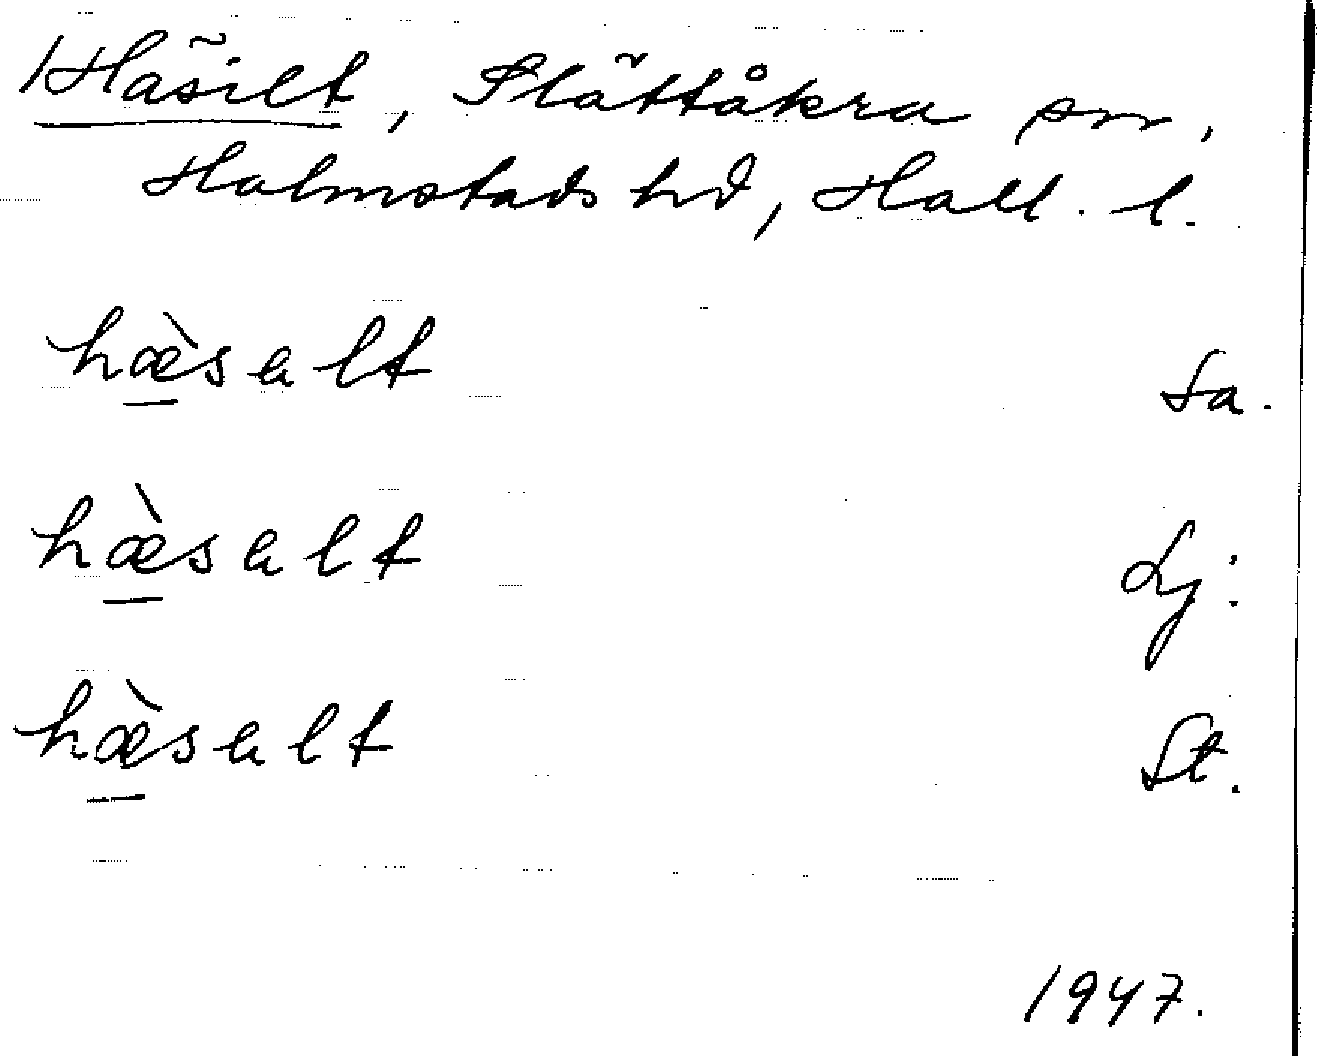 Häsilt, Slättåkra sn,
Halmstads hd, Hall. l.
hæ̀salt Sa.
hæ̀salt Lj:
hæ̀salt St.
1947.